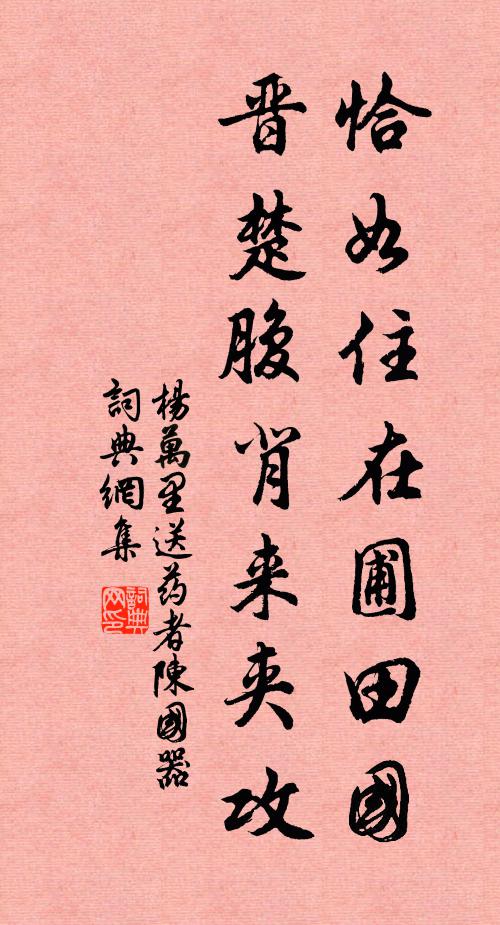 恰如住在圃田國
晋楚腹背来夹攻
楊萬里送药者陳國器
詞典網集
詞典网印